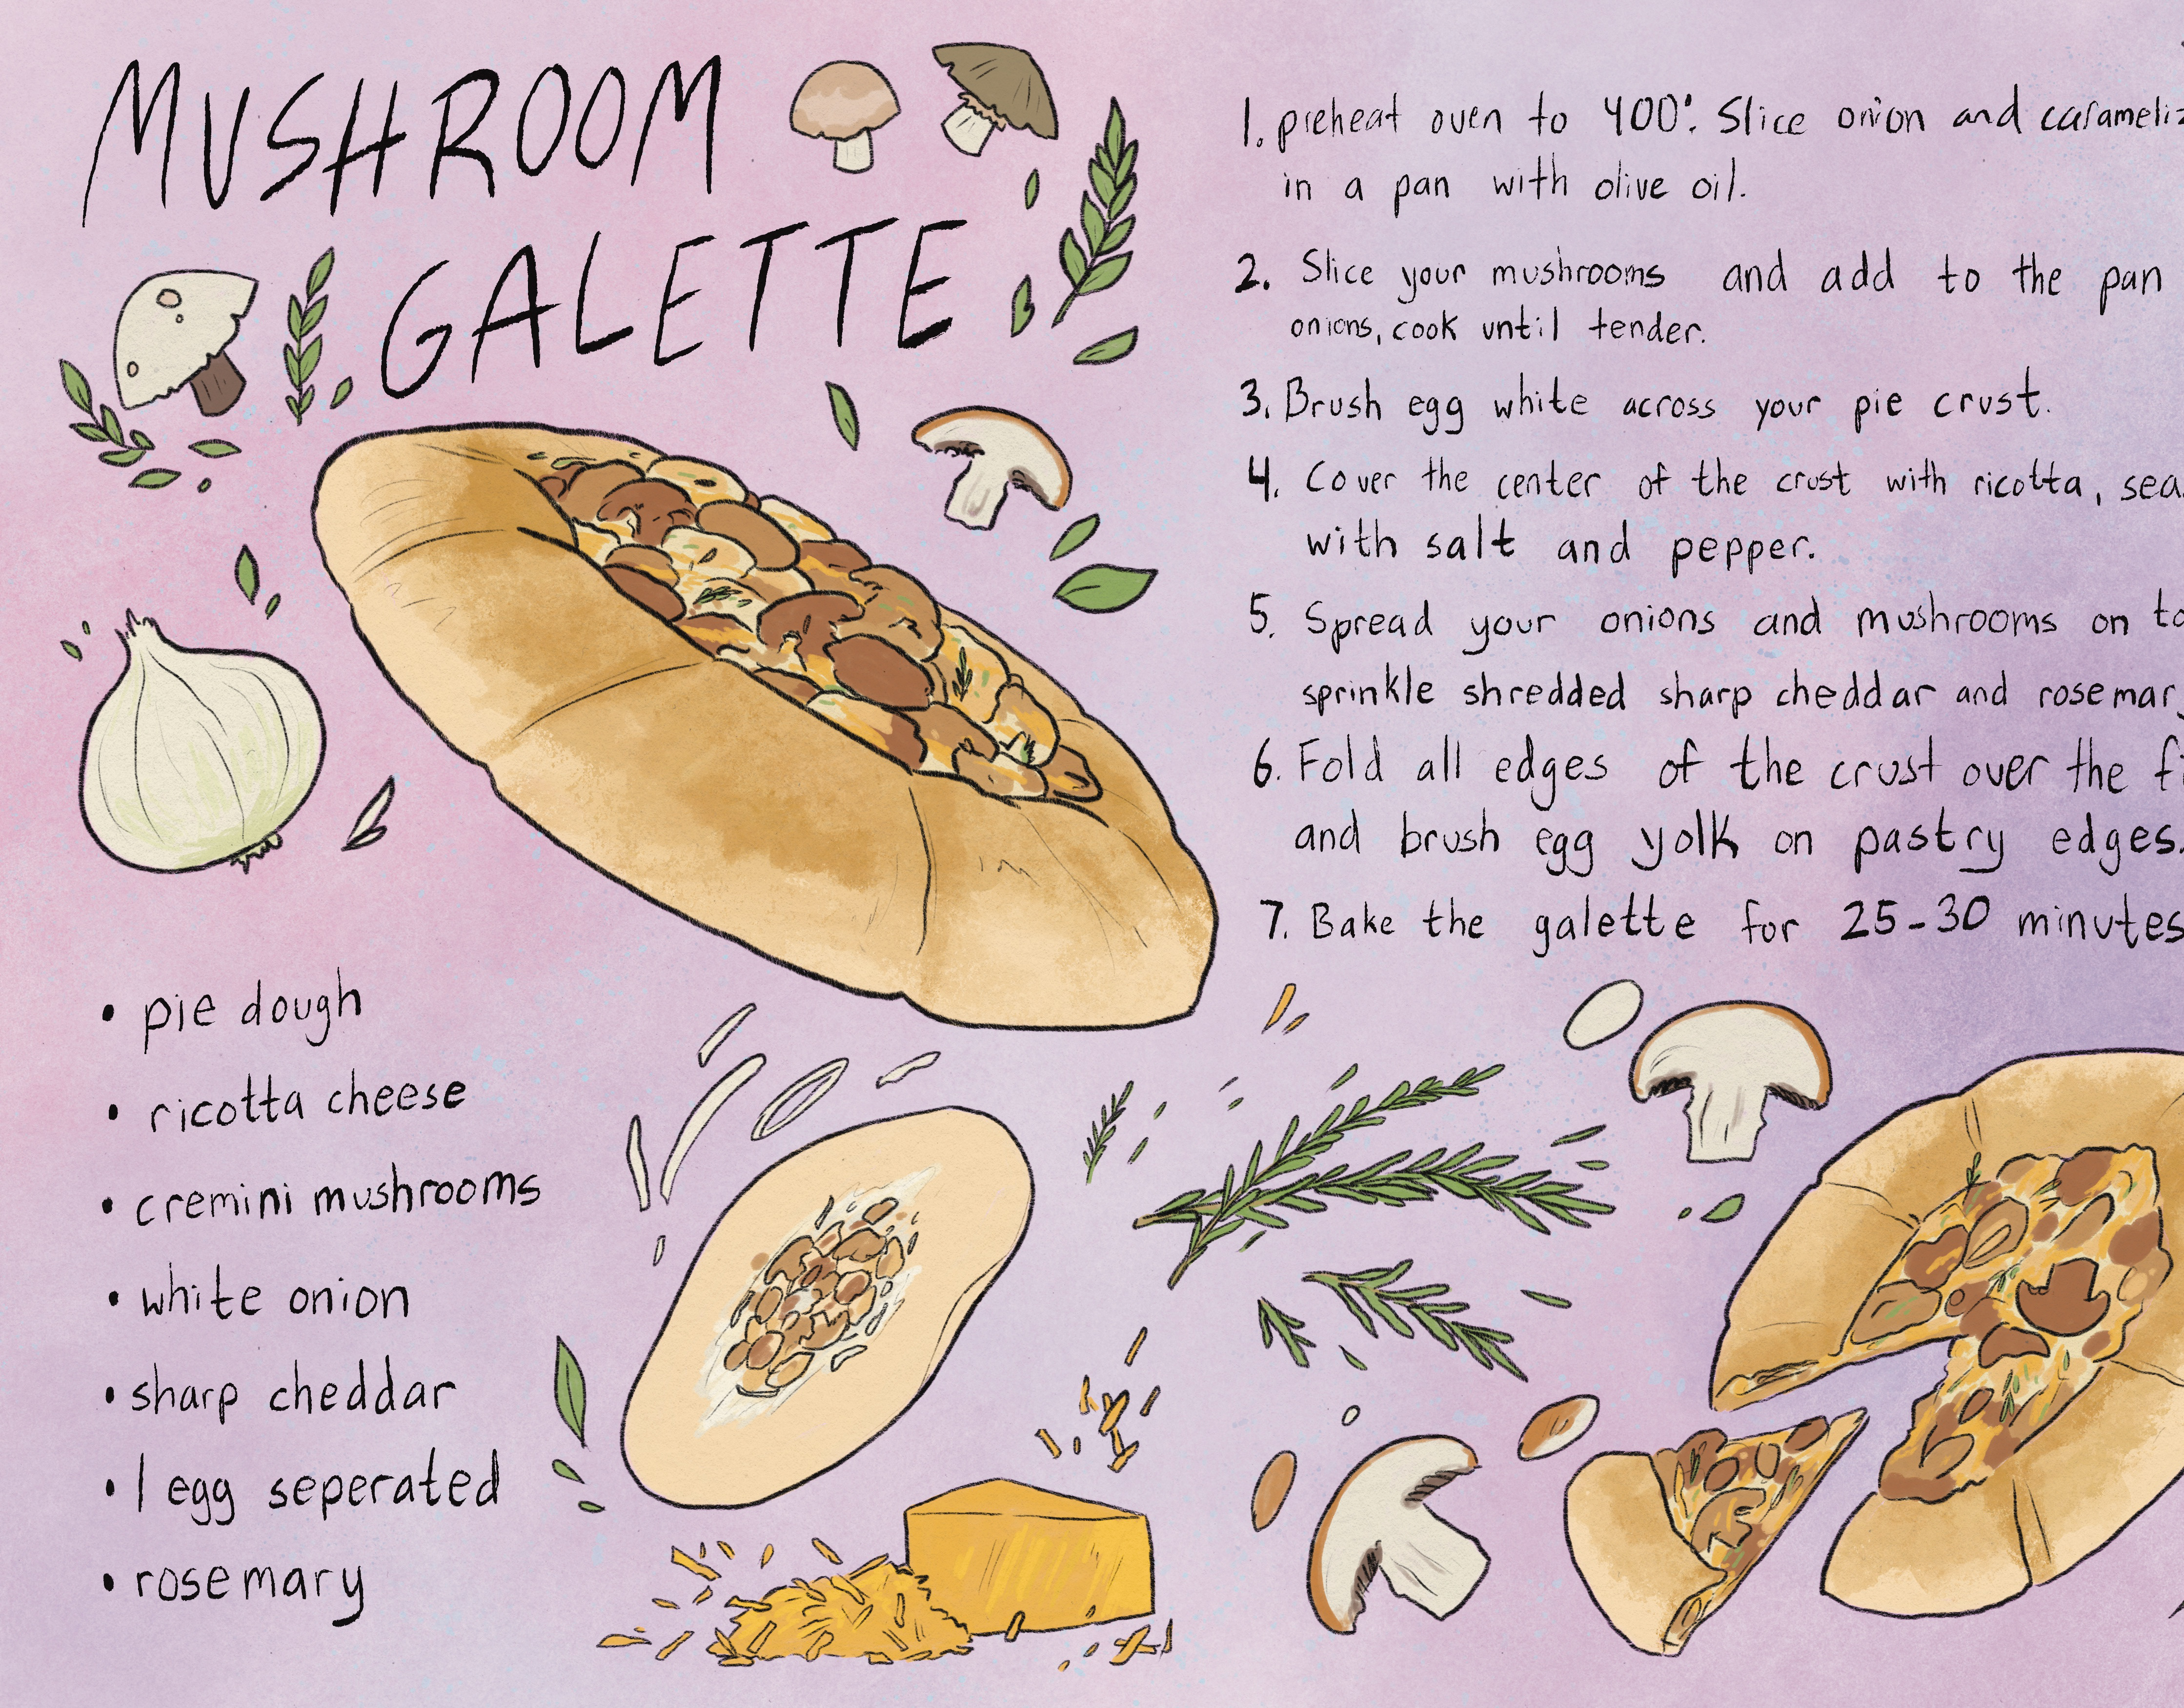 MUSHROOM
GALETTE
• pie dough
• ricotta cheese
• cremini mushrooms
• white onion
• sharp cheddar
• 1 egg seperated
• rosemary
1. preheat oven to 400°. Slice onion and carameliz
in a pan with olive oil.
2. Slice your mushrooms and add to the pan
onions, cook until tender.
3. Brush egg white across your pie crust.
4. Cover the center of the crust with ricotta, sea
with salt and pepper.
5. Spread your onions and mushrooms on to
sprinkle shredded sharp cheddar and rosemary
6. Fold all edges of the crust over the fi
and brush egg yolk on pastry edges.
7. Bake the galette for 25-30 minutes